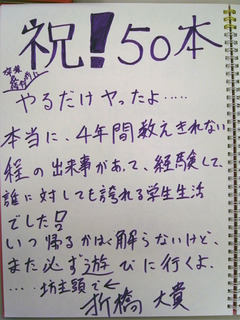 祝!50本
やるだけヤったよ……
本当に、4年間数えきれない
程の出来事があって、経験して、
誰に対しても誇れる学生生活
でした!!
いつ帰るかは解らないけど、
また必ず遊びに行くよ。
‥‥坊主頭で←
折橋 大貴